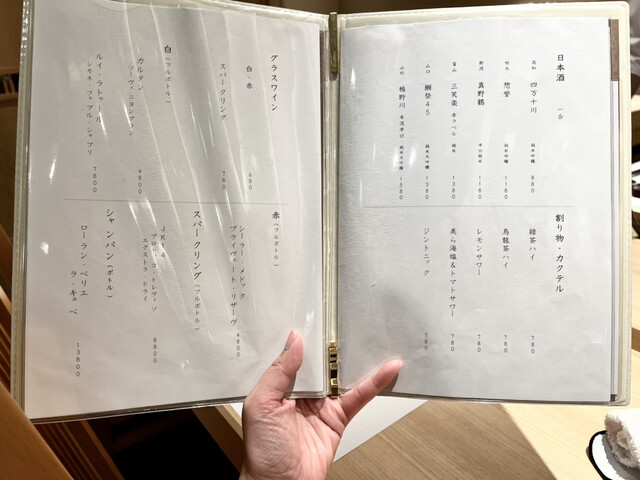 日本酒 一合
高知 四万十川 純米吟醸 880
栃木 惣誉 純米吟醸 1180
新潟 真野鶴 辛口純米 1180
富山 三笑楽 赤ラベル 純米 1380
山口 獺祭45 純米大吟醸 1380
山形 楯野川 純米大吟醸 1580
割り物・カクテル
緑茶ハイ 780
烏龍茶ハイ 780
レモンサワー 780
美ら海塩&トマトサワー 780
ジントニック 780
グラスワイン
白・赤 680
スパークリング 780
白(フルボトル)
カルタン
ソーヴィニヨンブラン 4800
ルイ・ラトゥール
シモネ・フェブル・シャブリ 7800
赤(フルボトル)
シーラー・メドック
プライヴェート・リザーヴ 4800
スパークリング(フルボトル)
プロセッコ・トレヴィーゾ
エクストラ・ドライ 8800
シャンパン(ボトル)
ローラン・ペリエ
ラ・キュベ 13800